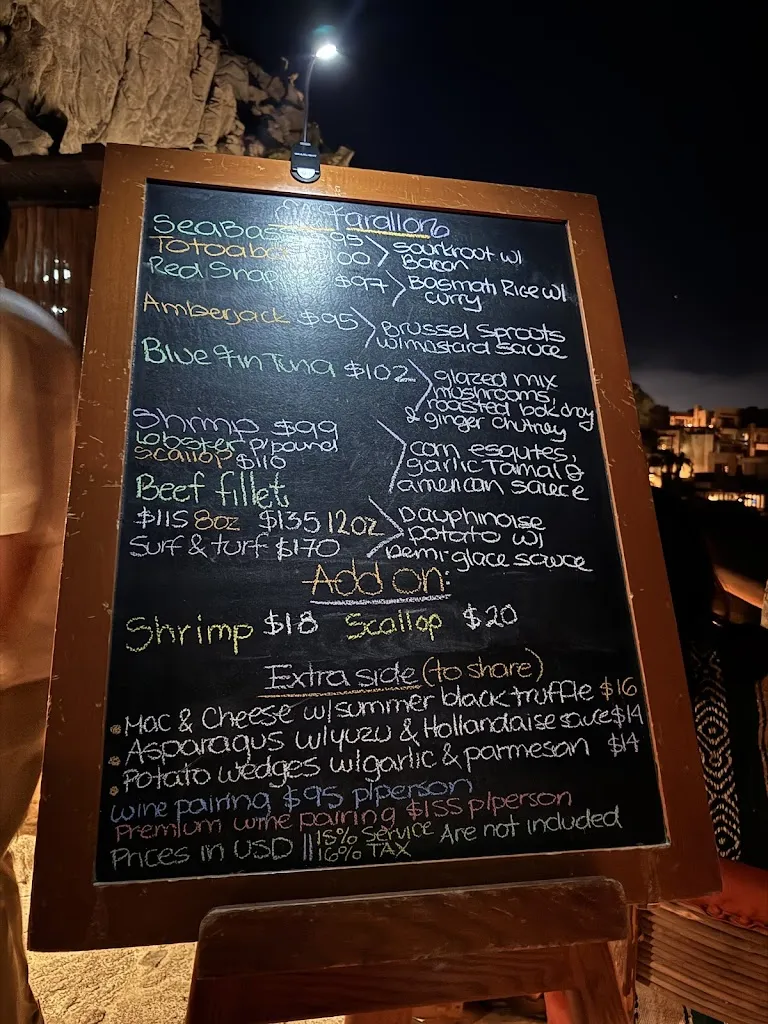 el farallon
SeaBass $95
Totoaba $100
sourkrout w/
Bacon
Red Snapper $97
Basmati Rice w/
curry
Amberjack $95
Brussel Sprouts
w/mustard sauce
Blue Fin Tuna $102
glazed mix
mushrooms,
roasted bok choy
& ginger chutney
Shrimp $99
Lobster p/pound
Scallop $110
corn esquites,
garlic Tamal &
american sauce
Beef fillet
$115 8oz $135 12oz
Surf & turf $170
Dauphinoise
potato w/
Demi-glace sauce
Add on:
Shrimp $18 Scallop $20
Extra side (to share)
Mac & Cheese w/summer black truffle $16
Asparagus w/yuzu & Hollandaise sauce $14
Potato wedges w/garlic & parmesan $14
wine pairing $95 p/person
Premium wine pairing $155 p/person
Prices in USD || 15% service
16% TAX Are not included